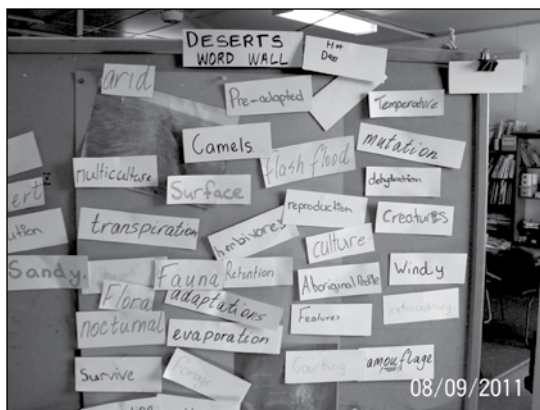 DESERTS
WORD WALL
Hot
Des
arid
Pre-adapted
Temperature
Camels
flash flood
mutation
multiculture
Surface
dehydration
ert
reproduction
Creatures
ution
transpiration
herbivores
culture
Sandy.
Fauna
Retention
Aboriginal People
Windy
Flora
adaptations
Features
extraordinary
nocturnal
evaporation
Survive
Forage
Courting
amouflage
08/09/2011